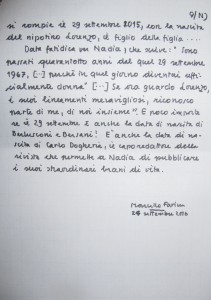 9/N)
si compie il 29 settembre 2015, con la nascita
del nipotino Lorenzo, il figlio della figlia....
Data fatidica per Nadia, che scrive: "Sono
passati quarantotto anni dal quel 29 settembre
1967, [..] perché in quel giorno diventai uffi-
cialmente donna" [..] Se ora guardo Lorenzo,
i suoi lineamenti meravigliosi, riconosco
parte di me, di noi insieme". E poco importa
se il 29 settembre è anche la data di nascita di
Berlusconi e Bersani! È anche la data di na-
scita di Carlo Dogheria, il caporedattore della
rivista che permette a Nadia di pubblicare
i suoi straordinari brani di vita.
Maurizio Farina
settembre